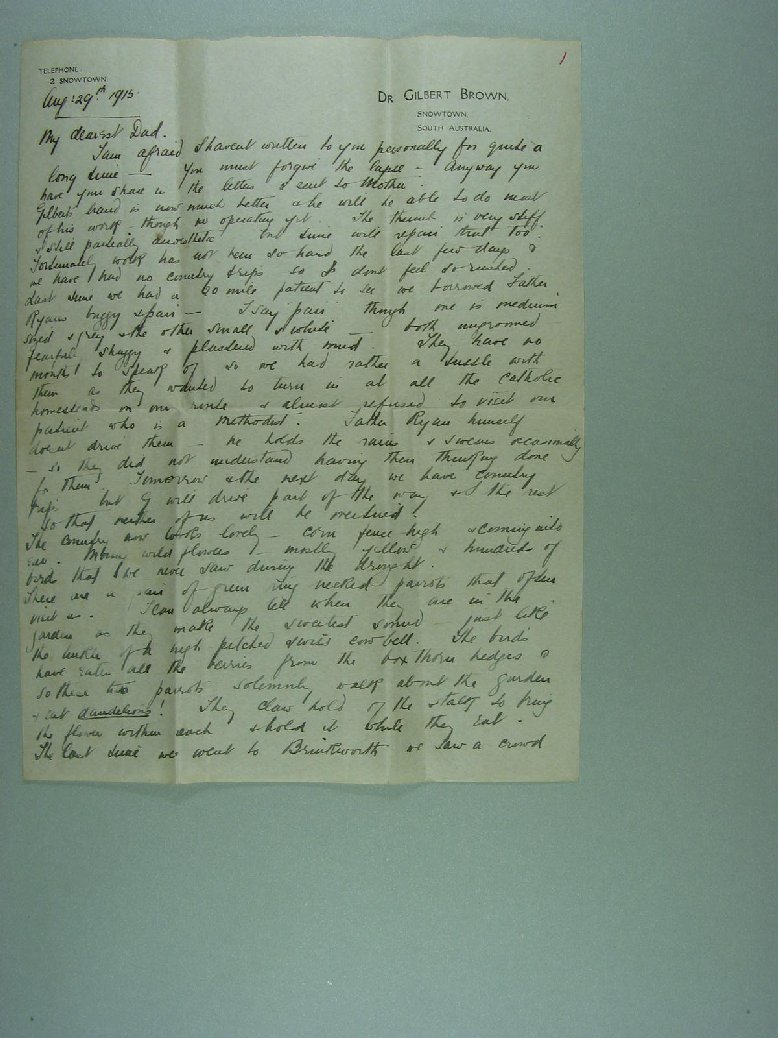 1
TELEPHONE
2 SNOWTOWN.
DR GILBERT BROWN,
SNOWTOWN,
SOUTH AUSTRALIA.
Aug: 29th 1915
My dearest Dad.
I am afraid I havent written to you personally for quite a
long time — You must forgive the lapse — Anyway you
have your share in the letters I sent to Mother.
Gilberts hand is now much better & he will be able to do most
of his work - though no operating yet. The thumb is very stiff
& still partially anaesthetic but time will repair that too.
Fortunately work has not been so hard the last few days &
we have had no country trips so I dont feel so rushed.
Last time we had a 20 mile patient to see we borrowed Father
Ryans buggy & pair — I say pair though one is medium
sized & grey & the other small & white — both ungroomed
fearful shaggy & plastered with mud. They have no
mouths to speak of so we had rather a tussle with
them as they wanted to turn in at all the catholic
homesteads on our route & almost refused to visit our
patient who is a Methodist. Father Ryan himself
doesnt drive them — he holds the reins & swears occasionally
— so they did not understand having their thinking done
for them! Tomorrow & the next day we have country
trips but G will drive part of the way & I the rest
so that neither of us will be overtired.
The country now looks lovely — corn fence high & coming into
ear. wild flowers — mostly yellow & hundreds of
birds that we never saw during the drought.
There are a pair of green ring necked parrots that often
visit us. I can always tell when they are in the
garden as they make the sweetest sound — just like
the tinkle of a high pitched swiss cow bell. The birds
have eaten all the berries from the box thorn hedges &
so these two parrots solemnly walk about the garden
& eat dandelions! They claw hold of the stalk to bring
the flower within reach & hold it while they eat.
The last time we went to Brinkworth we saw a crowd